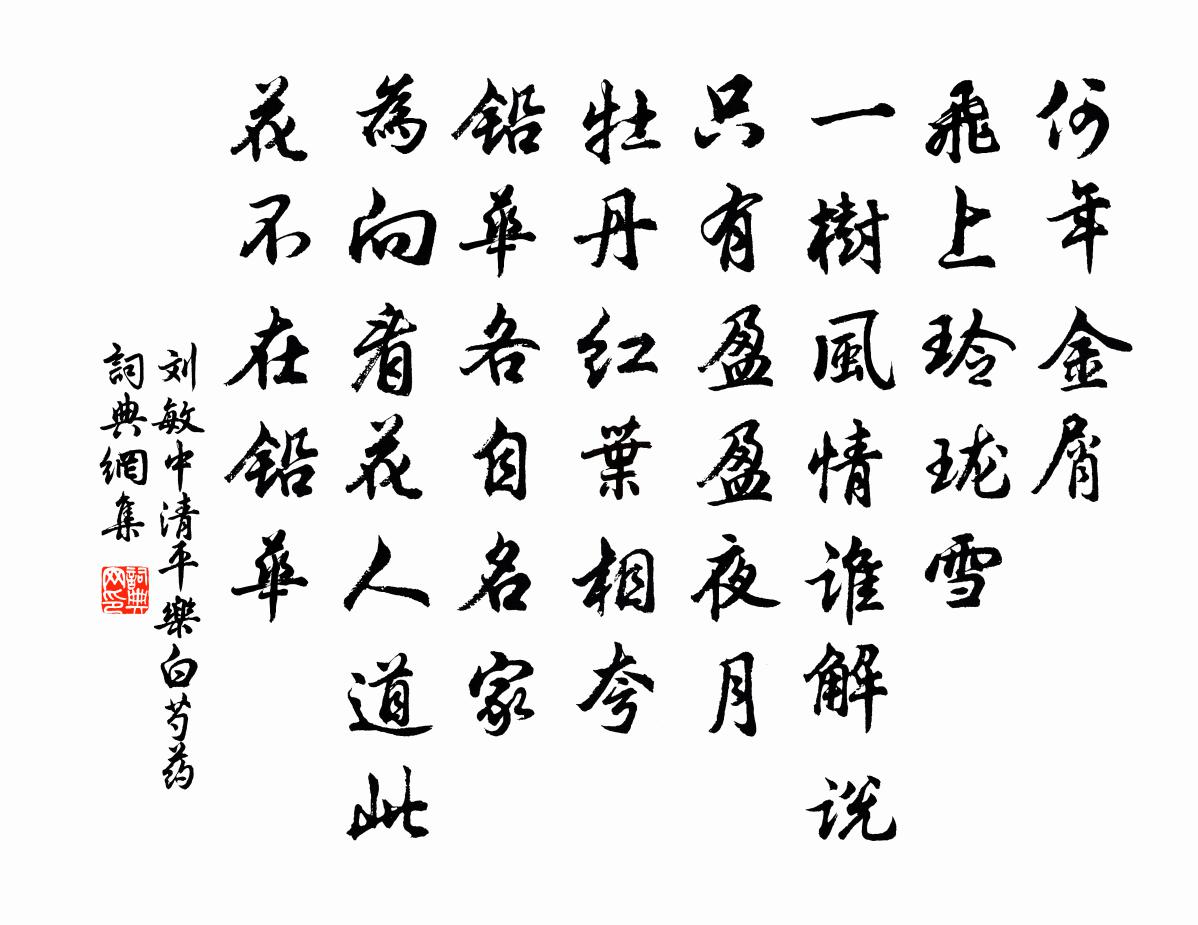 何年金屑
飛上玲珑雪
一樹風情谁解说
只有盈盈夜月
牡丹红葉相夸
铅華各自名家
為向看花人道此
花不在铅華
刘敏中清平樂白芍药
詞典網集
詞典网印